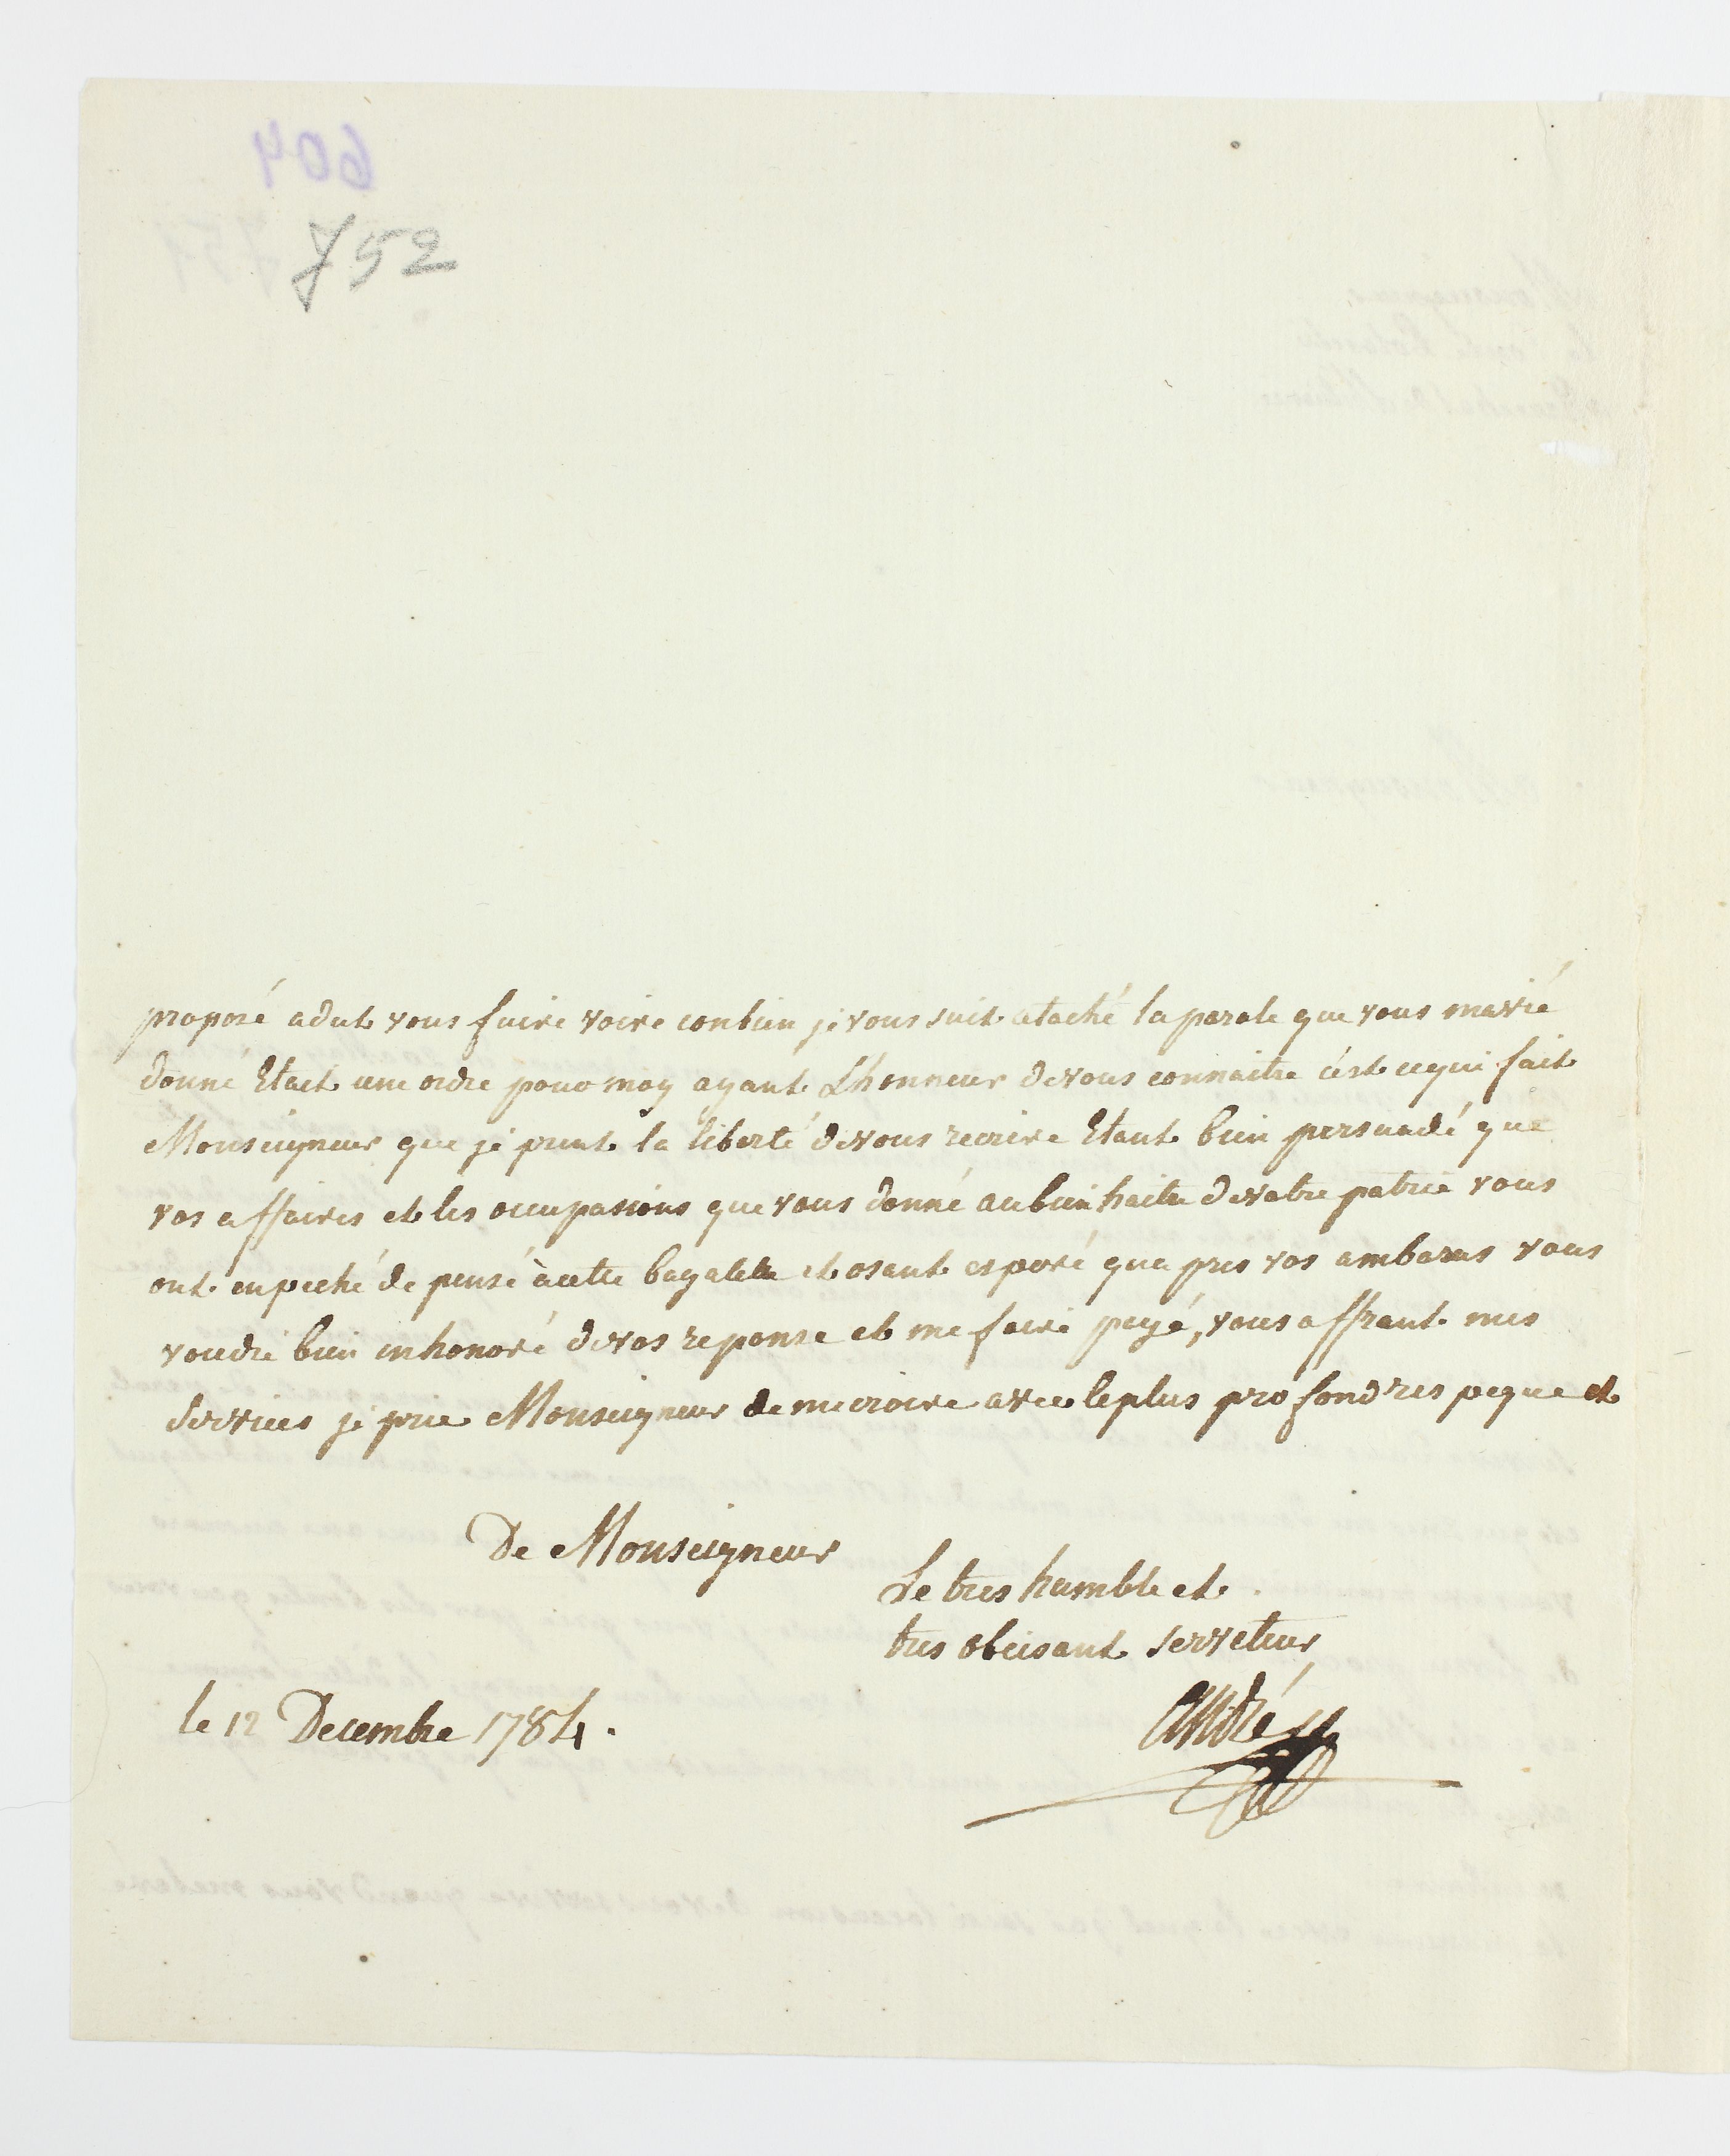 752
proposé adut vous faire voire conbien je vous suit ataché la parole que vous mavié
donné Etait une ordre pour moy ayant L'honneur devous connaitre c'est cequi fait
Monseigneur que je prent la liberté devous recrire Etant bien persuadé que
vos affaires et les occupasions que vous donné aubien haitre devotre patrie vous
ont enpeché de pensé àcette bagatelle et osant esperé qua pres vos ambaras vous
voudré bien mhonoré devos reponse et me faire peyé, vous offrant mes
services je prie Monseigneur de mecroire avec leplus profondres peque et
De Monseigneur
Le tres humble et
tres obeisant serveteur
le 12 Decembre 1784.
André